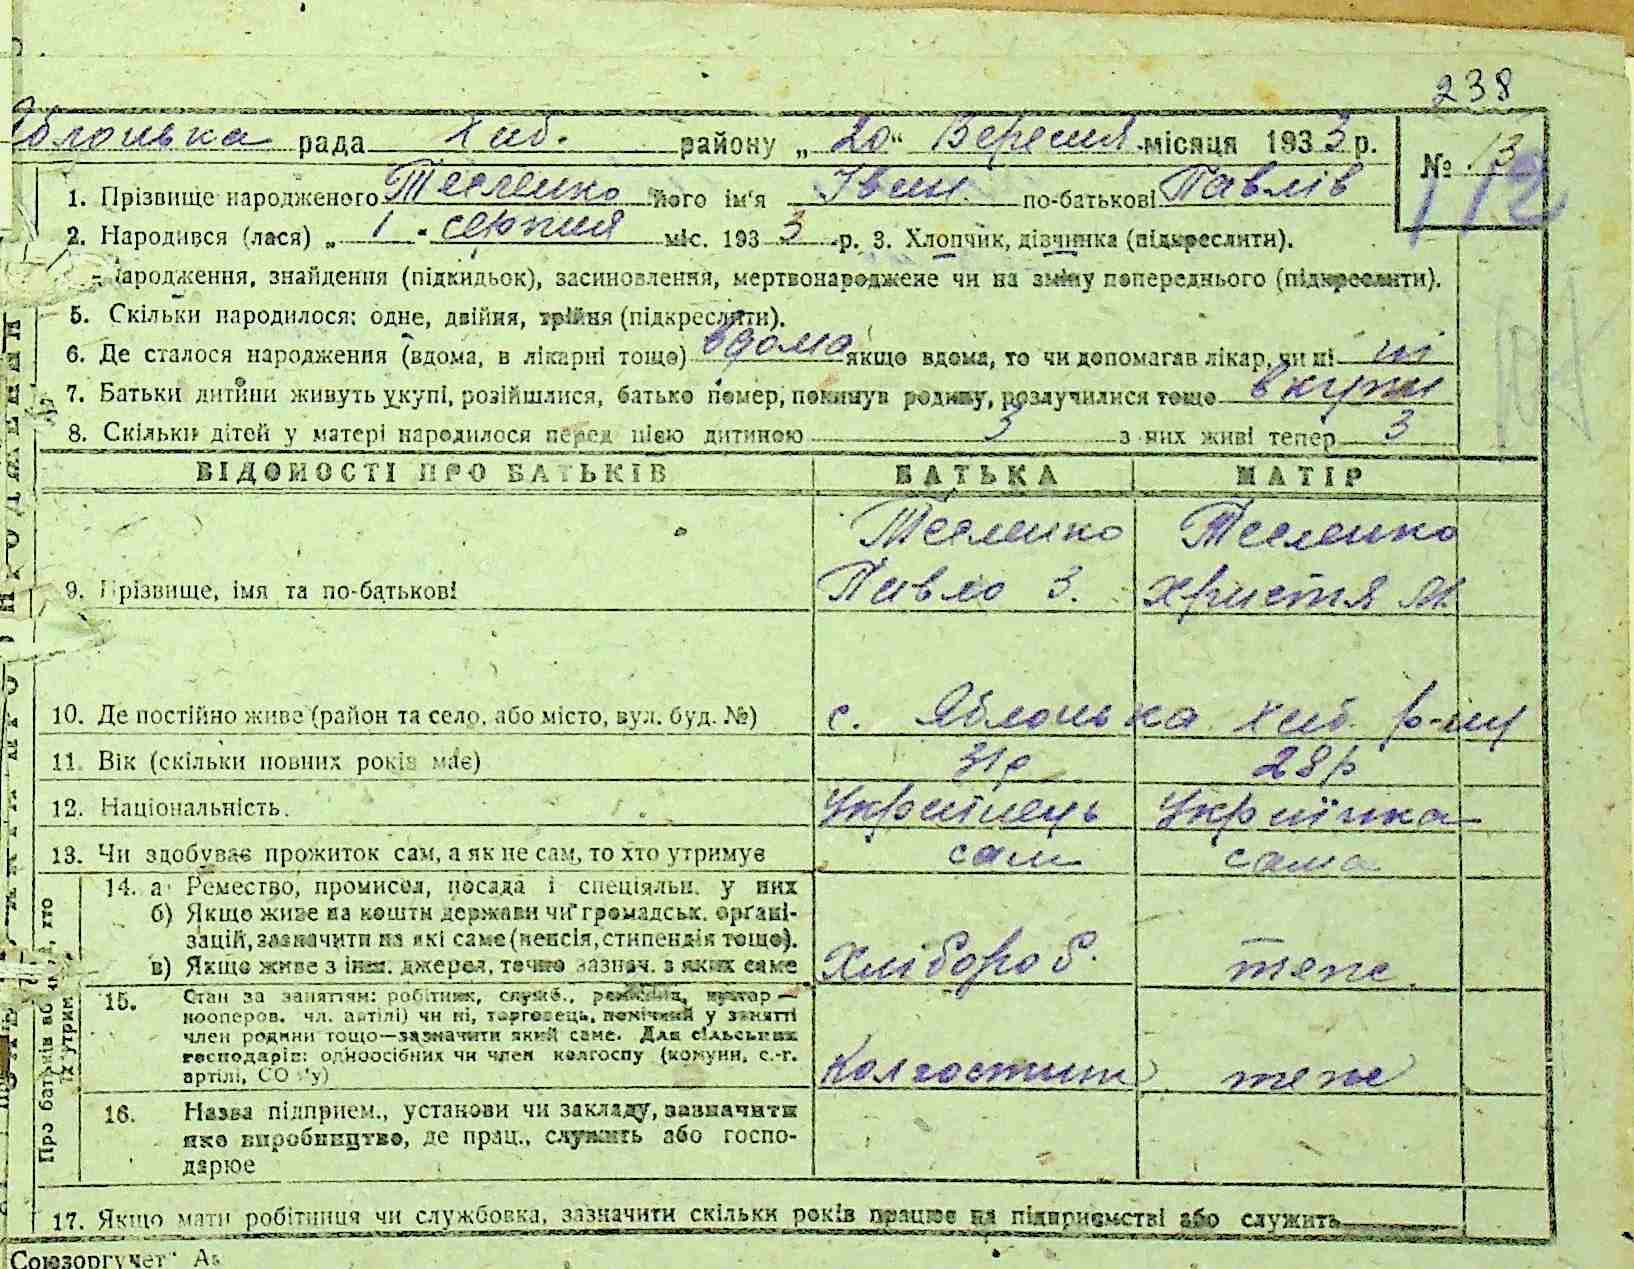 238
Яблонька рада Хаб. району „20“ Вересня місяця 1933 р.
№ 13
112
1. Прізвище народженого Тесленко його ім'я Іван. по-батькові Павлів
2. Народився (лася) „1“ серпня міс. 1933 р. 3. Хлопчик, дівчинка (підкреслити).
Народження, знайдення (підкидьок), засиновлення, мертвонароджене чи на зміну попереднього (підкреслити).
5. Скільки народилося: одне, двійня, трійня (підкреслити).
6. Де сталося народження (вдома, в лікарні тощо) вдома якщо вдома, то чи допомагав лікар, чи ні ні
7. Батьки дитини живуть укупі, розійшлися, батько помер, покинув родину, розлучилися тощо вкупи
8. Скільки дітей у матері народилося перед цією дитиною 3 з них живі тепер 3
ВІДОМОСТІ ПРО БАТЬКІВ БАТЬКА МАТІР
Тесленко Тесленко
9. Прізвище, імя та по-батькові Павло З. Христя М.
10. Де постійно живе (район та село, або місто, вул. буд. №) с. Яблонька Хаб. р-ну
11. Вік (скільки повних років має) 31р 28р
12. Національність. Українець Українка
13. Чи здобуває прожиток сам, а як не сам, то хто утримує сам сама
14. а Ремество, промисел, посада і спеціяльн. у них
б) Якщо живе на кошти держави чи громадськ. органі-
зацій, зазначити на які саме (пенсія, стипендія тощо).
в) Якщо живе з інш. джерел, точно зазнач. з яких саме Хлібороб. теж
15. Стан за заняттям: робітник, служб., ремісник, кустар —
кооперов. чл. артілі) чи ні, торговець, помічний у занятті
член родини тощо—зазначити який саме. Для сільських
господарів: одноосібних чи член колгоспу (комуни, с.-г.
артілі, СО у) Колгоспник теж
16. Назва підприєм., установи чи закладу, зазначити
яке виробництво, де прац., служить або госпо-
дарює
17. Якщо мати робітниця чи службовка, зазначити скільки років працює на підприємстві або служить
Союзоргучет